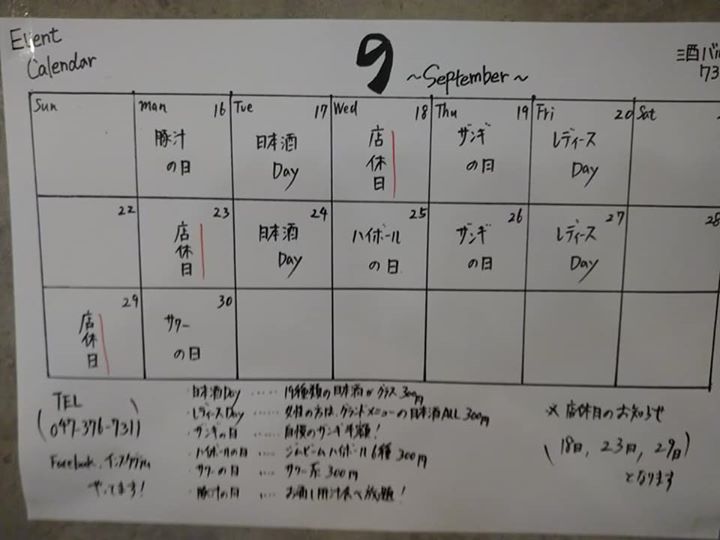 Event
Calendar
9
~September~
酒バル
73
Sun Mon 16 Tue 17 Wed 18 Thu 19 Fri 20 Sat
豚汁
の日
日本酒
Day
店休日
ザンギ
の日
レディース
Day
22 23 24 25 26 27 28
店休日
日本酒
Day
ハイボール
の日
ザンギ
の日
レディース
Day
29 30
店休日
サワー
の日
TEL
047-376-7311
Facebook、インスタグラム
やってます!
日本酒Day ‥‥‥ 種類の日本酒がグラス300円
レディースDay ‥‥‥ 女性の方は、グランドメニューの日本酒ALL 300円
ザンギの日 ‥‥‥ 自慢のザンギ半額!
ハイボールの日 ‥‥ ジムビームハイボール6種 300円
サワーの日 ‥‥ サワー系 300円
豚汁の日 ‥‥ お通し豚汁食べ放題!
※店休日のお知らせ
18日、23日、29日
となります